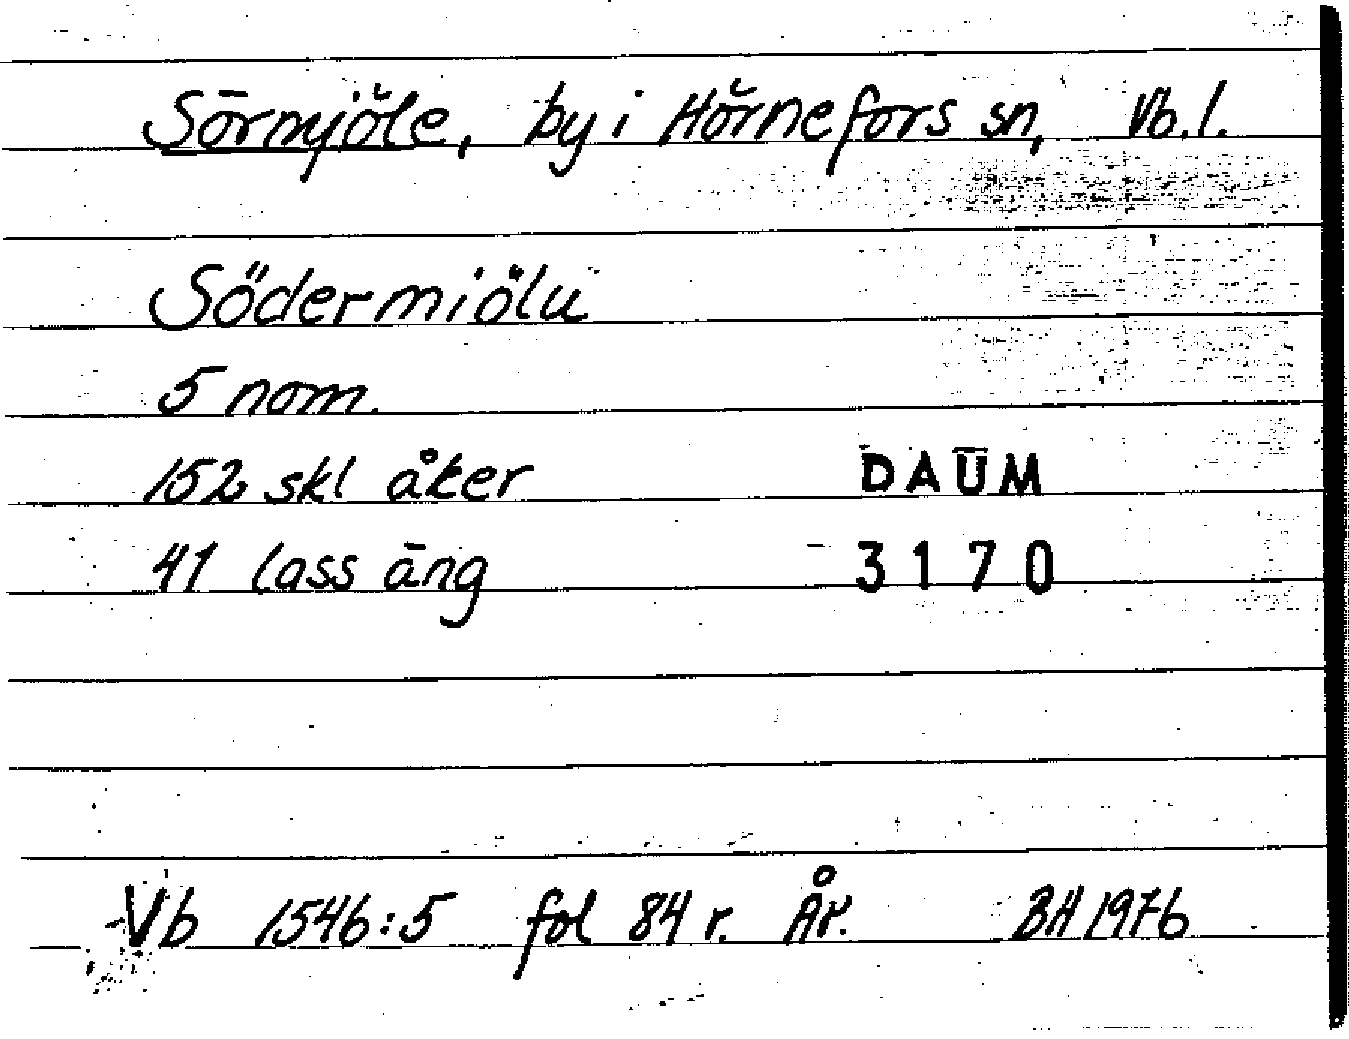 Sörmjöle, by i Hörnefors sn, Vb. l.
Södermiölu
5 nom.
152 skl åker
DAUM
41 lass äng
3170
Vb 1546:5 fol 84 r. År. BH 1976